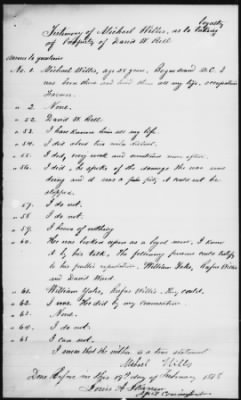 Testimony of Michael Willis, as to loyalty
of David W.
answers to questions
No. 1. Michael Willis, age 28 years, D.C. I
was born there and lived there all my life, occupation
Farmer.
" 2. None.
" 52. David W.
" 53. I have known him all my life.
" 54. I did
" 55. I did, very week and sometimes more often.
" 56. I did, he spoke of the damage the war was
doing and it was a pity it could not be
stopped.
" 57. I do not.
" 58 I do not.
" 59. I know of nothing
" 60. He was looked upon as a loyal man, I know
it by his talk. The following persons could testify
to his public reputation. William Yates, Rufus Willis
and David Ward.
" 61. William Yates, Rufus Willis. They could.
" 62. I was. He did by my
" 63. None.
" 64. I do not.
" 65 I can not.
I swear that the within is a true statement
Michael Willis
Done before me this 17th day of February 187